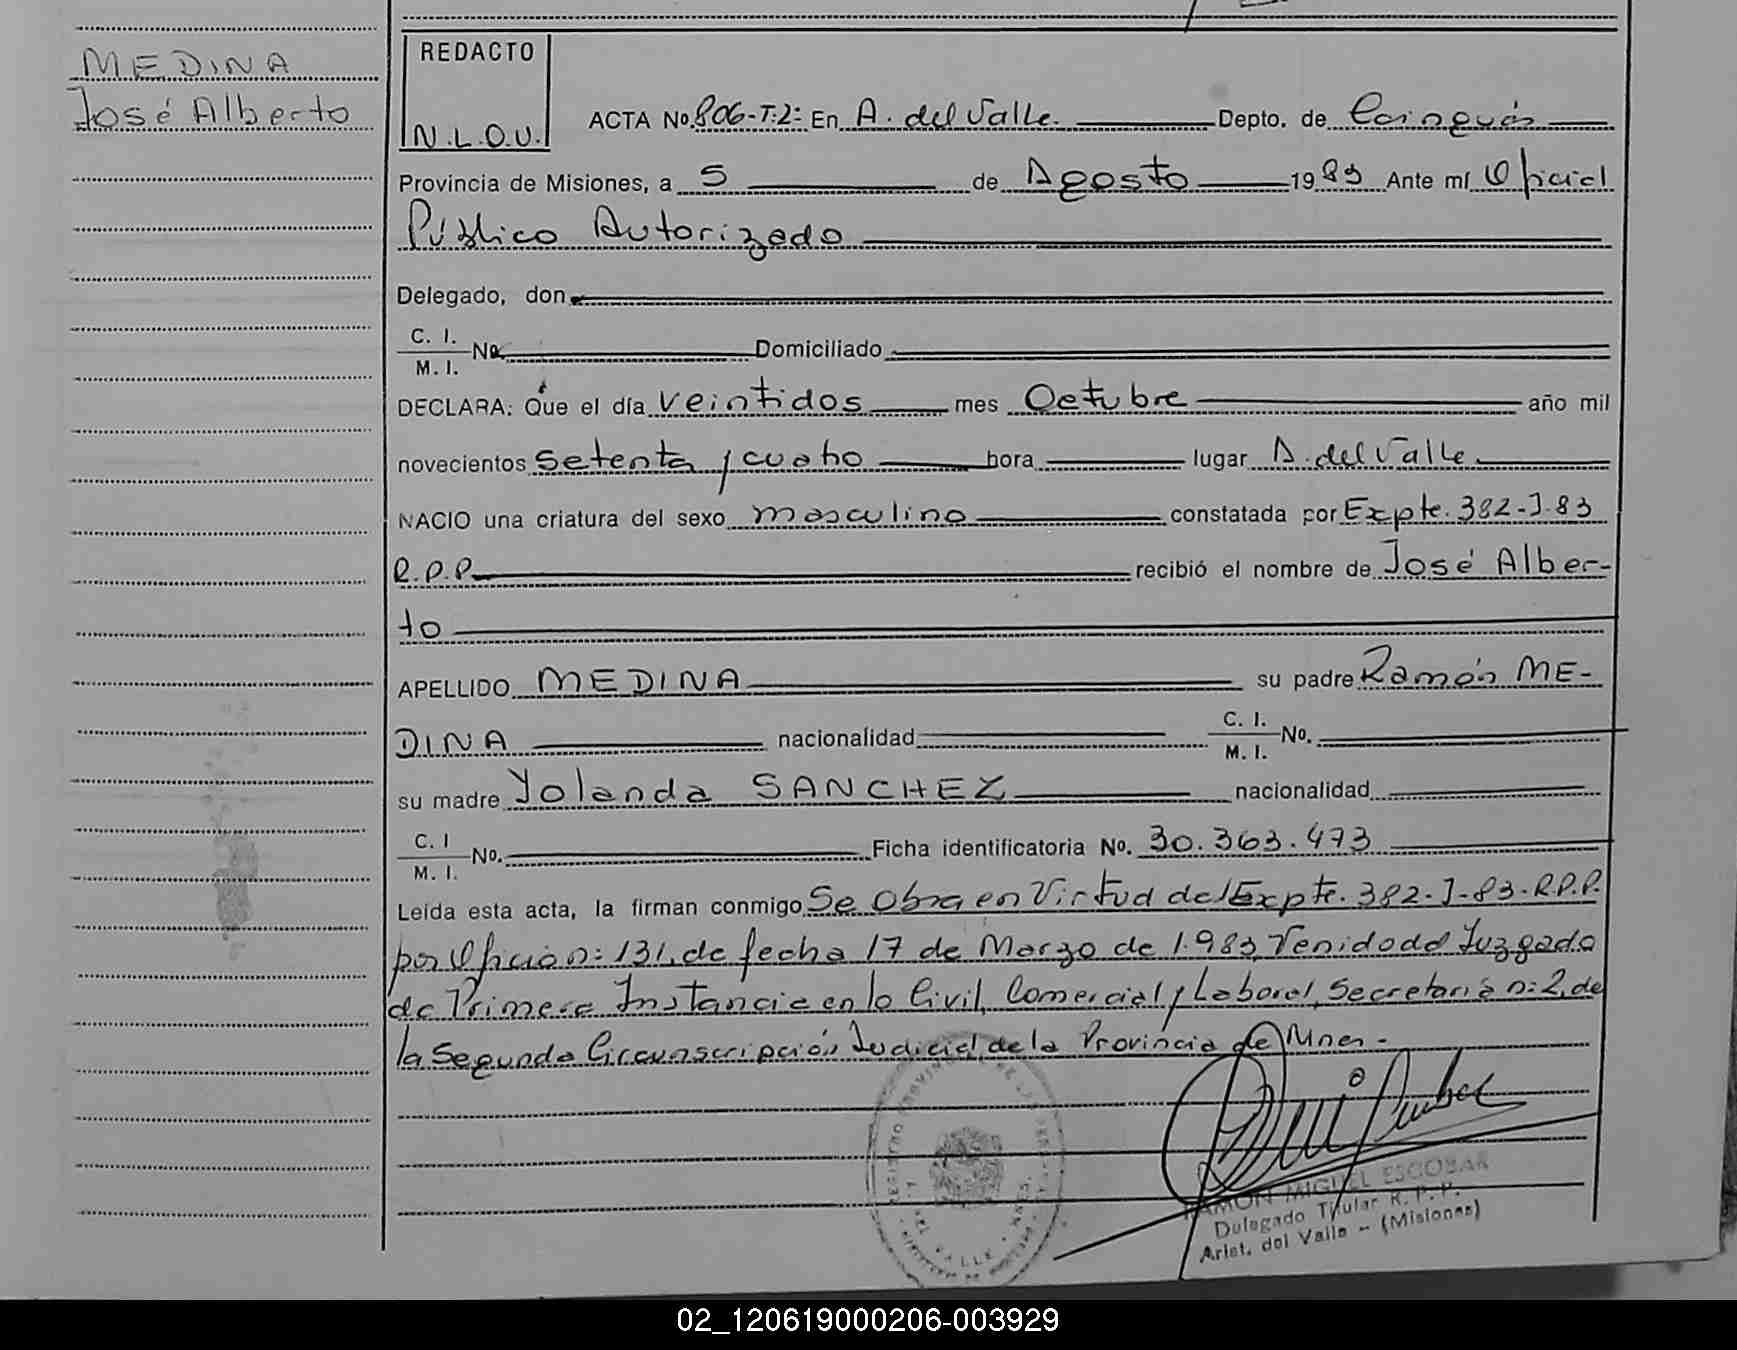 MEDINA
José Alberto
REDACTO
N.L.O.V.
ACTA No. 806-T:2: En A. del Valle. Depto. de Cainguás
Provincia de Misiones, a 5 de Agosto 1983 Ante mí Oficial
Público Autorizado
Delegado, don
C. I.
M. I. No. Domiciliado
DECLARA: Que el día veintidos mes Octubre año mil
novecientos setenta y cuatro hora lugar A. del Valle
NACIO una criatura del sexo masculino constatada por Expte. 382-J-83
R.P.P. recibió el nombre de José Alber-
to
APELLIDO MEDINA su padre Ramón ME-
DINA nacionalidad C. I. M. I. No.
su madre Yolanda SANCHEZ nacionalidad
C. I M. I. No. Ficha identificatoria No. 30.363.473
Leída esta acta, la firman conmigo Se Obra en Virtud del Expte. 382-J-83-R.P.P.
por Oficio n: 131, de fecha 17 de Marzo de 1.983, Venido del Juzgado
de Primera Instancia en lo Civil, Comercial y Laboral, Secretaría n: 2, de
la Segunda Circunscripción Judicial de la Provincia de Mnes.-
RAMON MIGUEL ESCOBAR
Delegado Titular R. P. P.
Arist. del Valle - (Misiones)
02_120619000206-003929